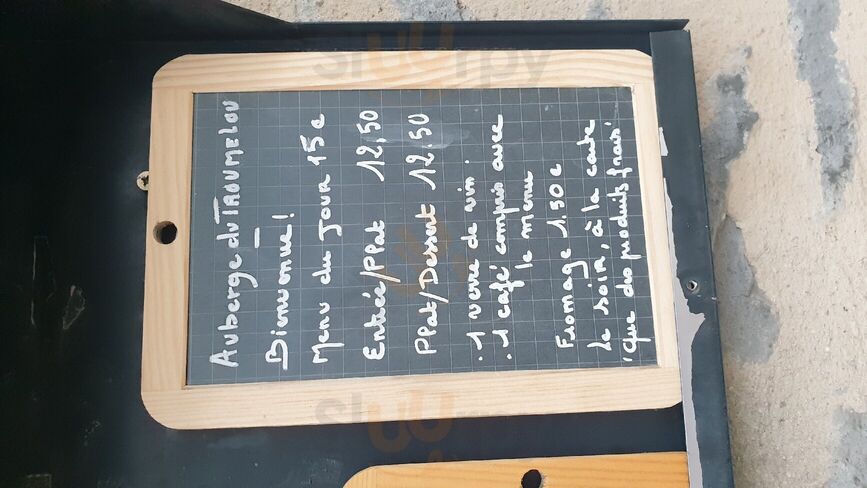 Auberge du TROUMELOU
Bienvenue!
Menu du JOUR 15e
Entrée/Plat 12,50
Plat/Dessert 12.50
. 1 verre de vin
. 1 café compris avec
le menu
Fromage 1.50 e
Le soir, à la carte
'que des produits frais'
sluurpy
sluurpy